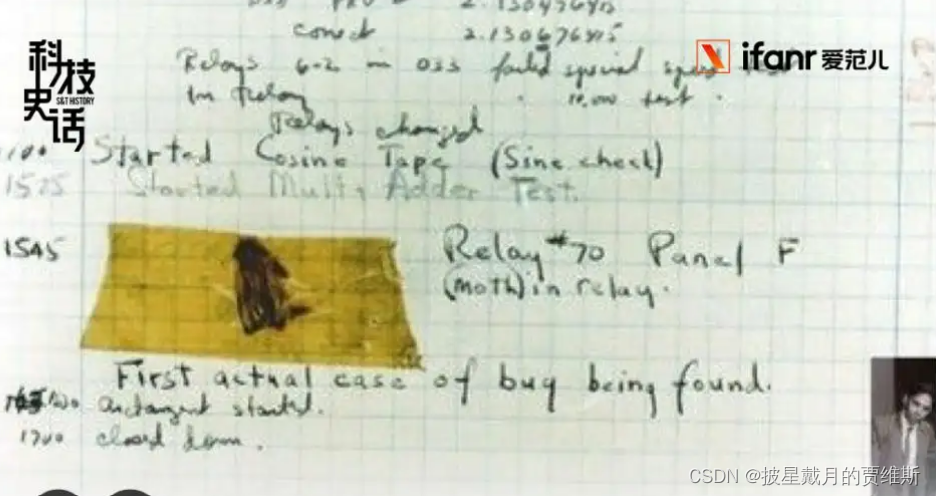 科技史话
S&T HISTORY
ifanr 爱范儿
2.130476415
conect 2.130676415
Relays 6-2 in 033 failed special speed test
In Relay 10,000 test.
Relays changed
Started Cosine Tape (Sine check)
1525 Started Mult+ Adder Test.
1545 Relay #70 Panel F
(moth) in relay.
First actual case of bug being found.
antangent started.
1700 closed down.
CSDN @披星戴月的贾维斯